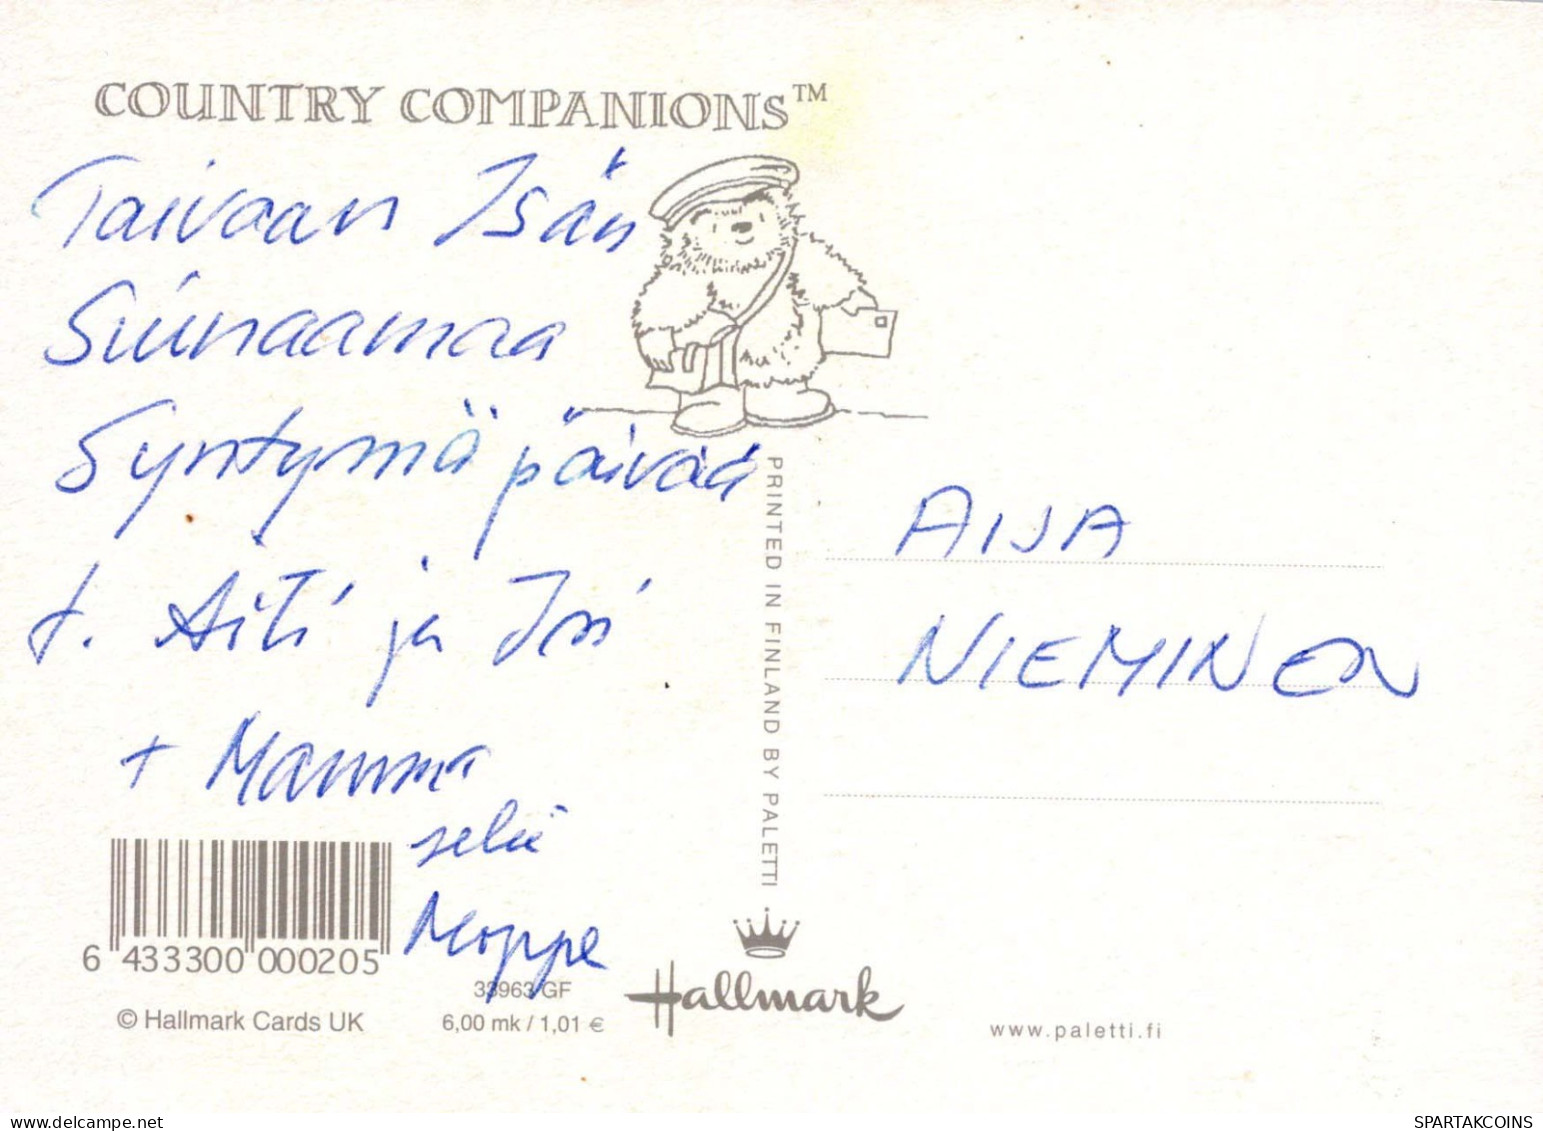 COUNTRY COMPANIONS™
Taivaan Isän
Siunaamaa
Syntymäpäivää
t. Äiti ja Isi
+ Mamma
sekä
Moppe
AIJA
NIEMINEN
PRINTED IN FINLAND BY PALETTI
6 433300 000205
© Hallmark Cards UK
33963 GF
6,00 mk / 1,01 €
Hallmark
www.paletti.fi
delcampe.net
SPARTAKCOINS